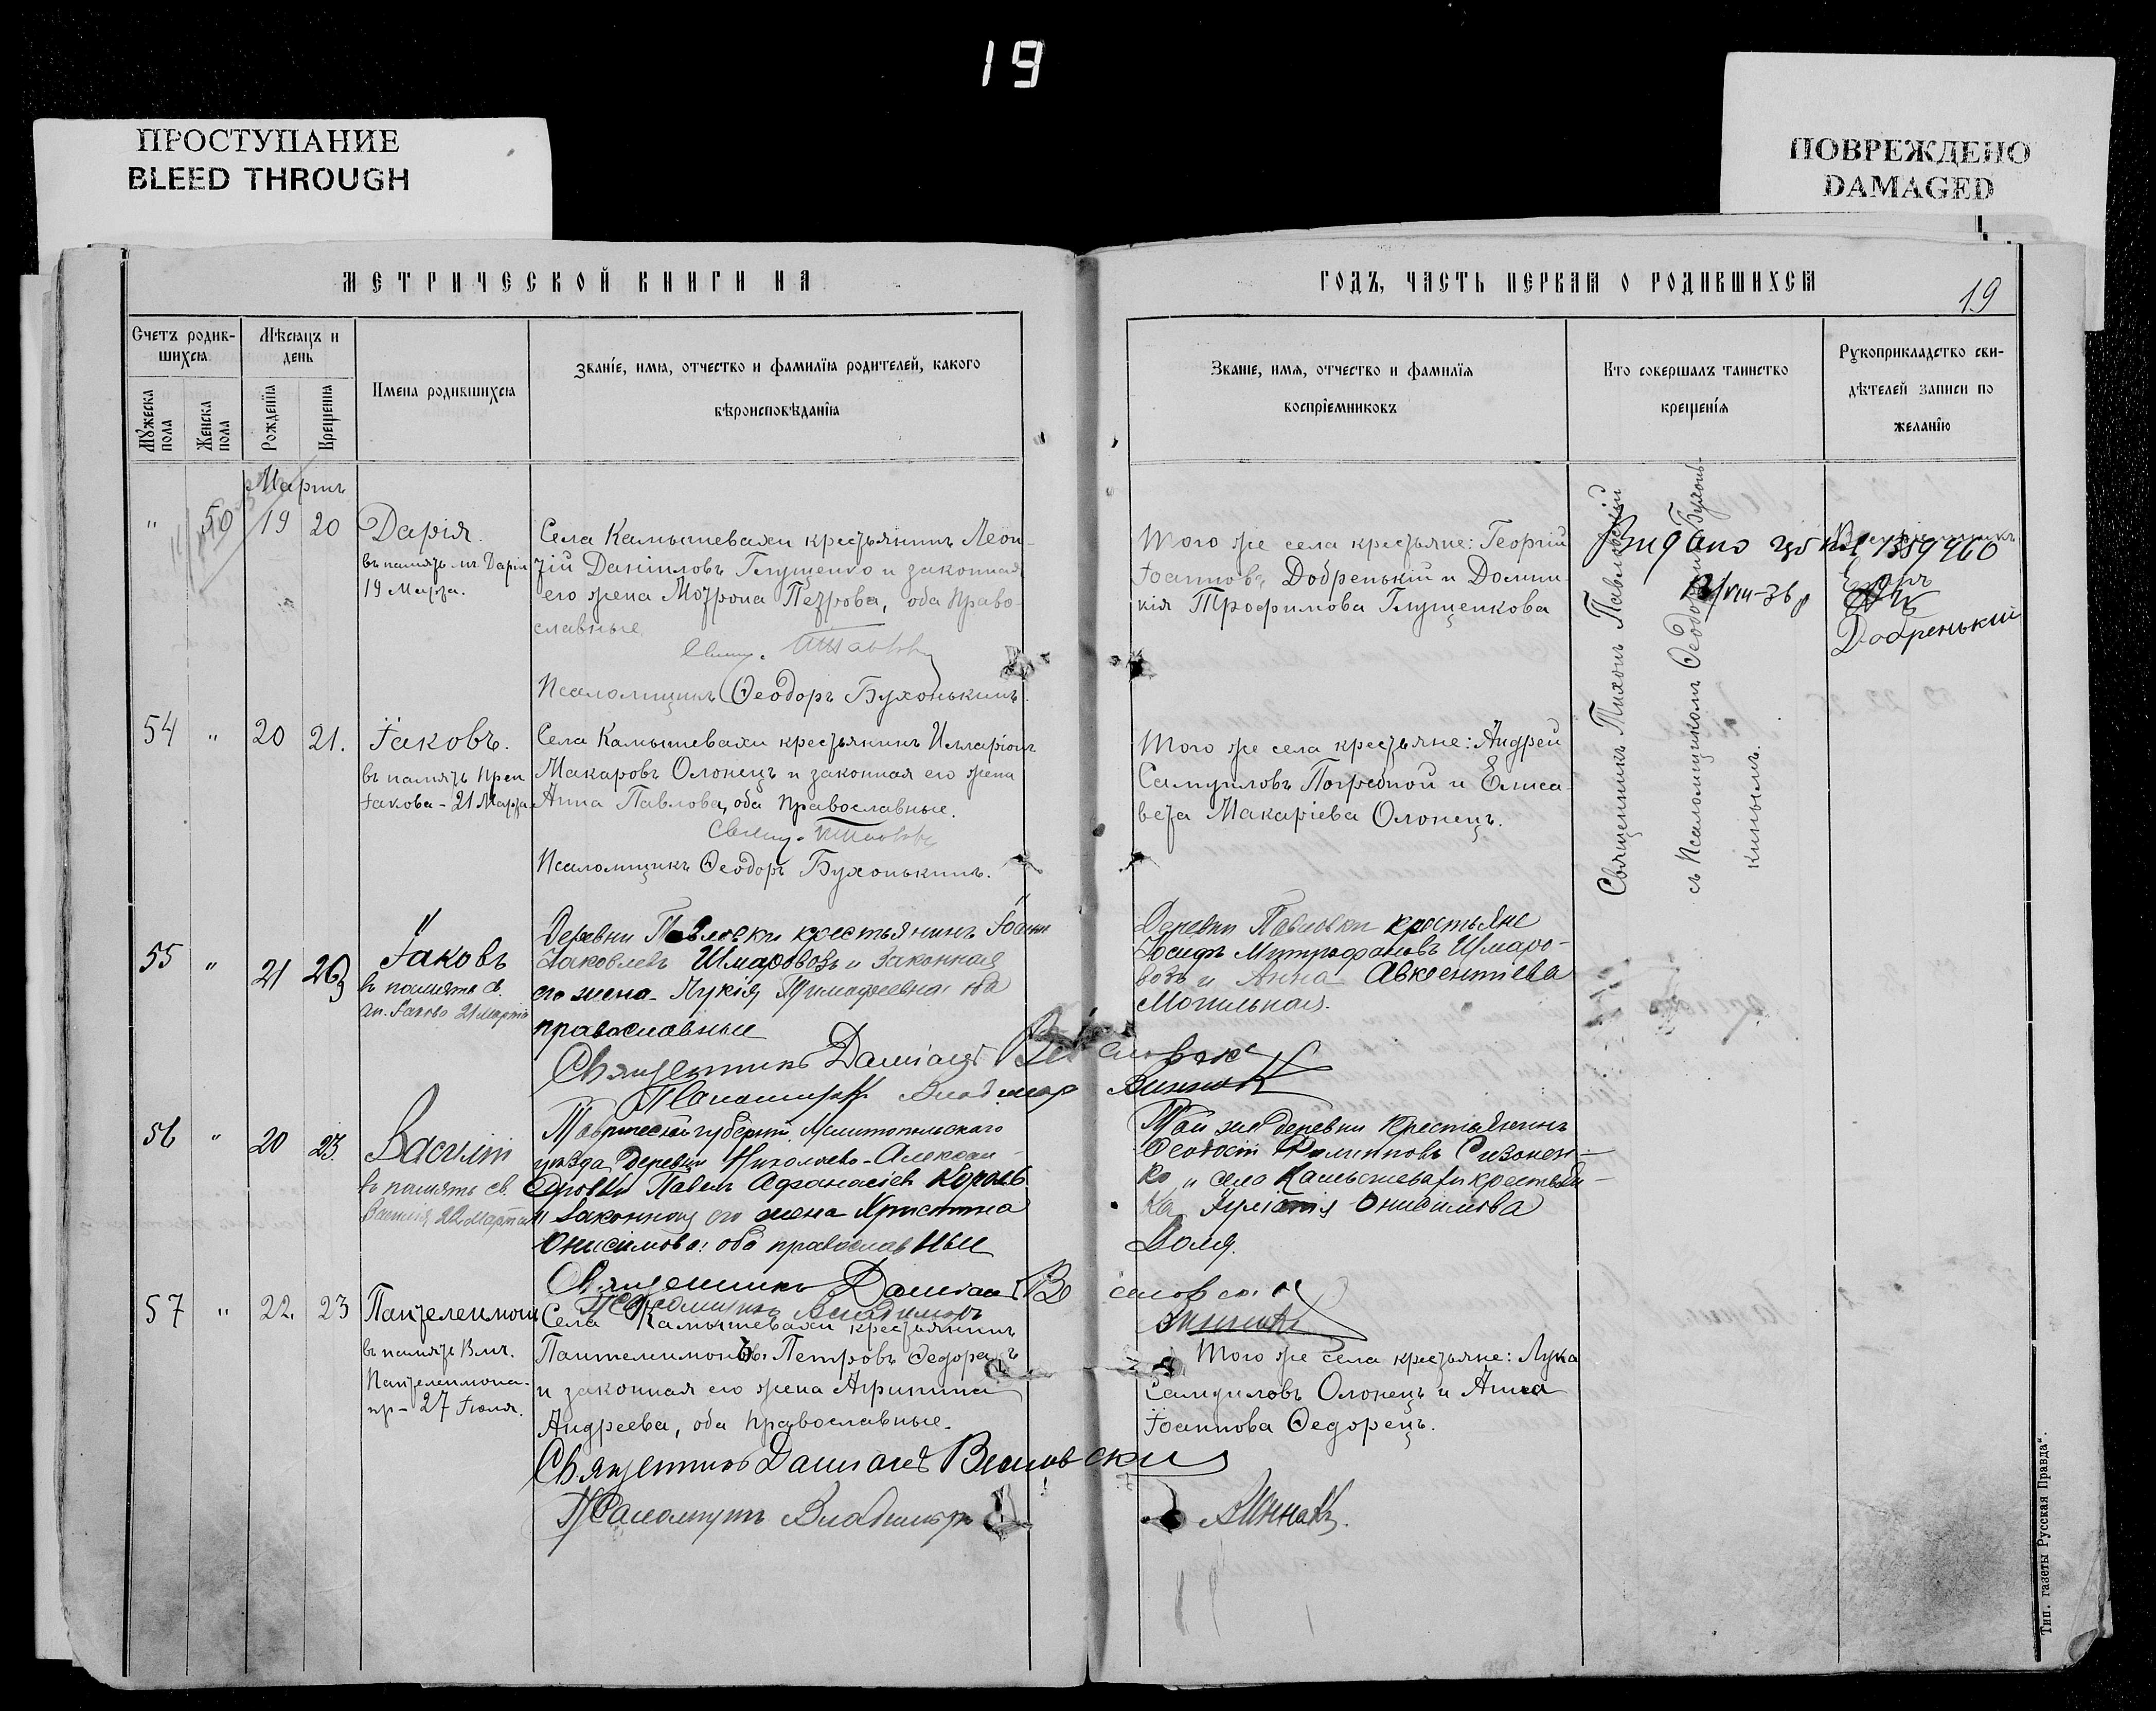 19
ПРОСТУПАНИЕ
BLEED THROUGH
ПОВРЕЖДЕНО
DAMAGED
МЕТРИЧЕСКОЙ КНИГИ НА
ГОДЪ, ЧАСТЬ ПЕРВАЯ О РОДИВШИХСЯ
19
Счетъ родив-
шихся
Мѣсяцъ и
день
Мужеска пола
Женска пола
Рожденїя
Крещенїя
Имена родившихся
Званїе, имя, отчество и фамилїя родителей, какого
вѣроисповѣданїя
Званїе, имя, отчество и фамилїя
воспрїемниковъ
Кто совершалъ таинство
крещенїя
Рукоприкладство сви-
дѣтелей записи по
желанїю
Мартъ
" 50 19 20
Дарія.
въ память мч. Даріи
19 Марта.
Села Камышевахи крестьянинъ Леон-
тій Даніиловъ Глущенко и законная
его жена Матрона Петрова, оба право-
славные.
Псаломщикъ Ѳеодоръ Бухонькинъ.
Того же села крестьяне: Георгій
Іоанновъ Добренькій и Домни-
кія Трофимова Глущенкова
Священникъ Тихонъ Павловскій
съ Псаломщикомъ Ѳеодоромъ Бухонь-
кинымъ.
Видано
1389960
Добренькій
54 " 20 21.
Іаковъ.
въ память преп.
Іакова - 21 Марта.
Села Камышевахи крестьянинъ Илларіонъ
Макаровъ Олонецъ и законная его жена
Анна Павлова, оба православные.
Псаломщикъ Ѳеодоръ Бухонькинъ.
Того же села крестьяне: Андрей
Самуиловъ Погребной и Елиса-
вета Макаріева Олонецъ.
55 " 21
Іаковъ
въ память св.
Іакова 21 Марта
Деревни Павловки крестьянинъ Іоаннъ
Іаковлевъ Шмаровозъ и законная
его жена Лукія Тимофеевна оба
православные
Священникъ Даміанъ
Псаломщикъ Владимиръ Винникъ
Деревни Павловки крестьяне
Іосифъ Митрофановъ Шмаро-
возъ и Анна Авксентіева
Могильная.
56 " 20 23.
Василій
въ память св.
Василія 22 Марта
Таврической губерніи, Мелитопольскаго
уѣзда Деревни Николаево-Алексан-
дровки Павелъ Афанасіев Король
и законная его жена Христина
Онисимова: оба православные
Священникъ Даміанъ
Псаломщикъ Владимиръ Винникъ
Той же деревни крестьянинъ
Ѳеодосій Филипповъ Сизонен-
ко и села Камышевахи крестьян-
ка Онисимова
57 " 22. 23
Пантелеимонъ
въ память Влмч.
Пантелеимона.
пр- 27 Іюля.
Села Камышевахи крестьянинъ
Пантелеимонъ Петровъ
и законная его жена Агрипина
Андреева, оба православные.
Священникъ Даміанъ
Псаломщикъ Владимиръ Винникъ.
Того же села крестьяне: Лука
Самуиловъ Олонецъ и Анна
Іоаннова Ѳедорецъ.
Тип. газеты Русская Правда".